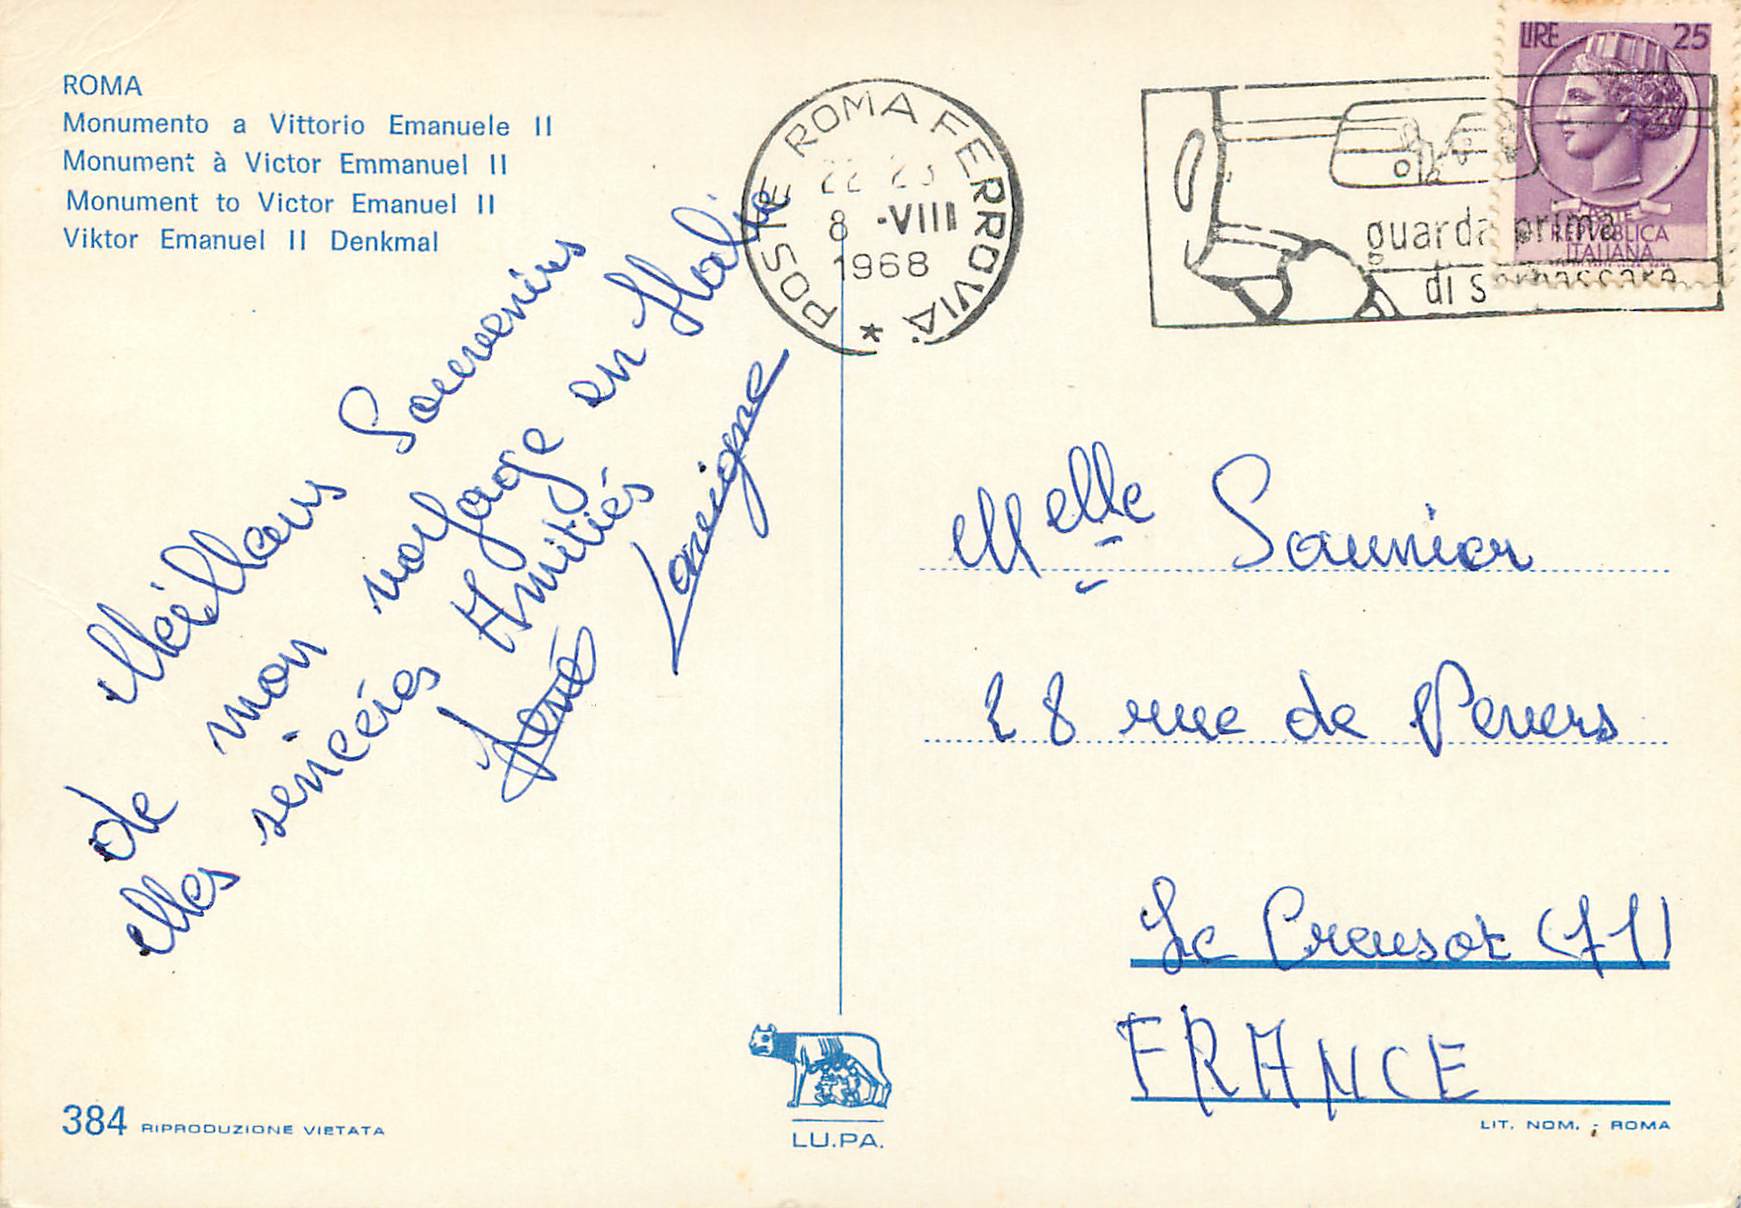 ROMA
Monumento a Vittorio Emanuele II
Monument à Victor Emmanuel II
Monument to Victor Emanuel II
Viktor Emanuel II Denkmal
POSTE ROMA FERROVIA *
8 -VIII
1968
guarda prima
di sorpassare
LIRE 25
POSTE
REPVBBLICA
ITALIANA
Méilleurs Souvenirs
de mon voyage en Italie
Mes sencéres Amitiés
Lavigne
Melle Saunier
28 rue de Pevers
Le Creusot (71)
FRANCE
384 RIPRODUZIONE VIETATA
LU.PA.
LIT. NOM. - ROMA